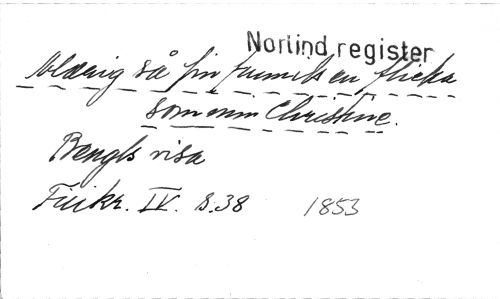 Norlind register
Aldrig så fin funnits en flicka
som min Christine.
Bengts visa
Finkr. IV. S.38 1853